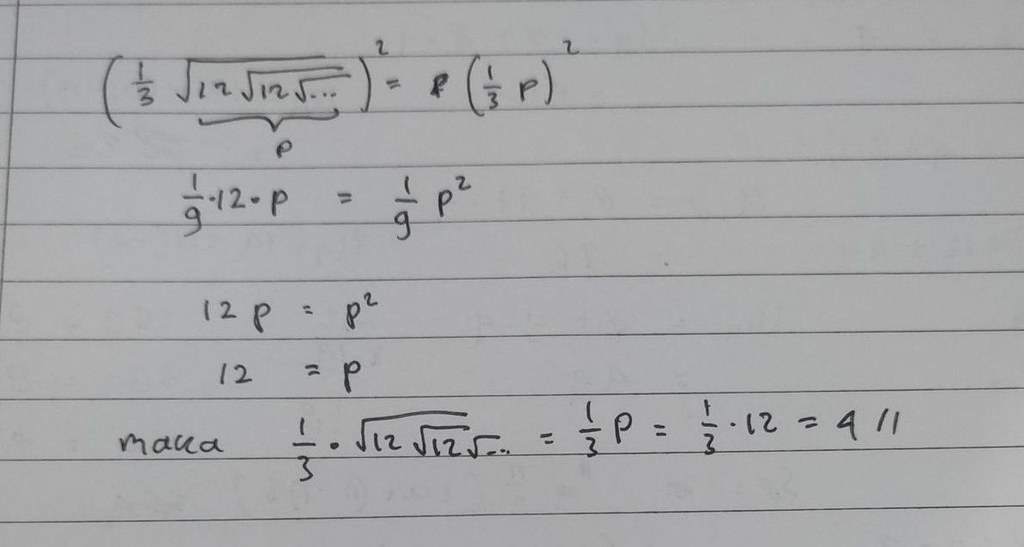 (1/3 √12√12√...)² = (1/3 p)²
p
1/9 · 12 · p = 1/9 p²
12 p = p²
12 = p
maka 1/3 · √12√12√... = 1/3 p = 1/3 · 12 = 4 //